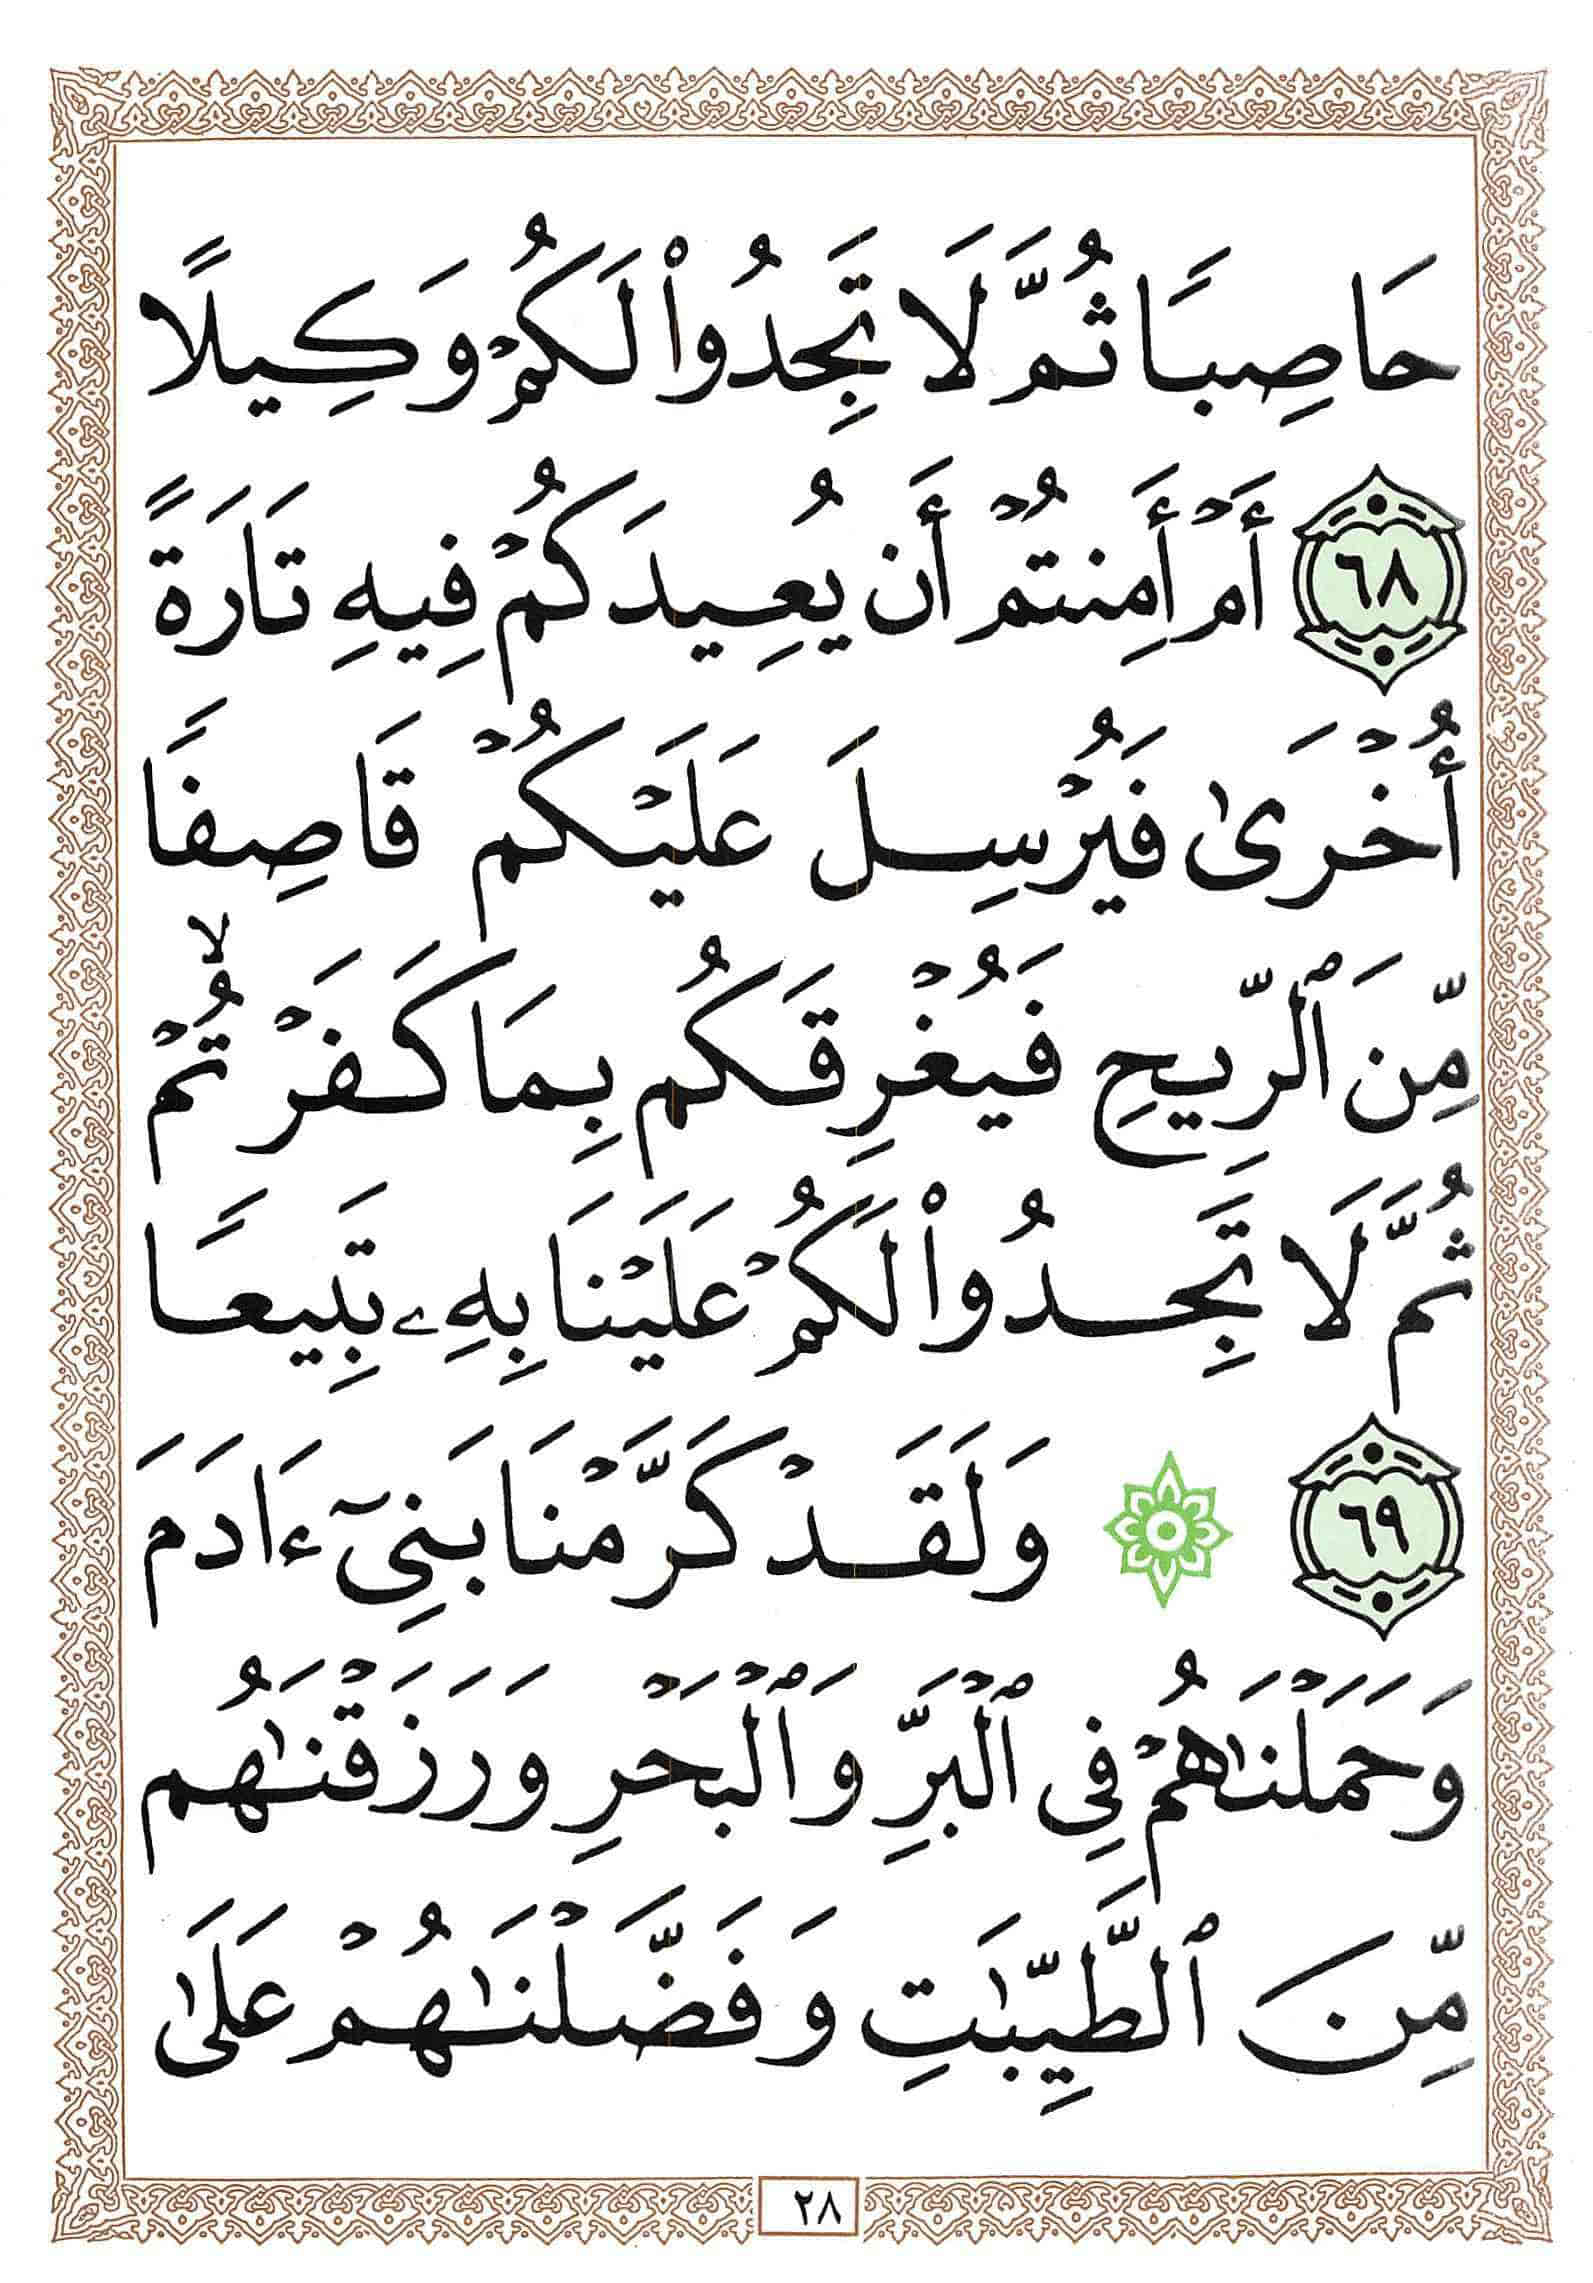 حَاصِبًا ثُمَّ لَا تَجِدُوا۟ لَكُمْ وَكِيلًا
٦٨ أَمْ أَمِنتُمْ أَن يُعِيدَكُمْ فِيهِ تَارَةً
أُخْرَىٰ فَيُرْسِلَ عَلَيْكُمْ قَاصِفًا
مِّنَ ٱلرِّيحِ فَيُغْرِقَكُم بِمَا كَفَرْتُمْ ۙ
ثُمَّ لَا تَجِدُوا۟ لَكُمْ عَلَيْنَا بِهِۦ تَبِيعًا
٦٩ ۞ وَلَقَدْ كَرَّمْنَا بَنِىٓ ءَادَمَ
وَحَمَلْنَـٰهُمْ فِى ٱلْبَرِّ وَٱلْبَحْرِ وَرَزَقْنَـٰهُم
مِّنَ ٱلطَّيِّبَـٰتِ وَفَضَّلْنَـٰهُمْ عَلَىٰ
٢٨